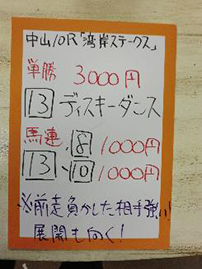 中山10R「湾岸ステークス」
単勝 3000円
13 ディスキーダンス
馬連 8 1000円
13、10 1000円
※前走負かした相手強い!
展開も向く!